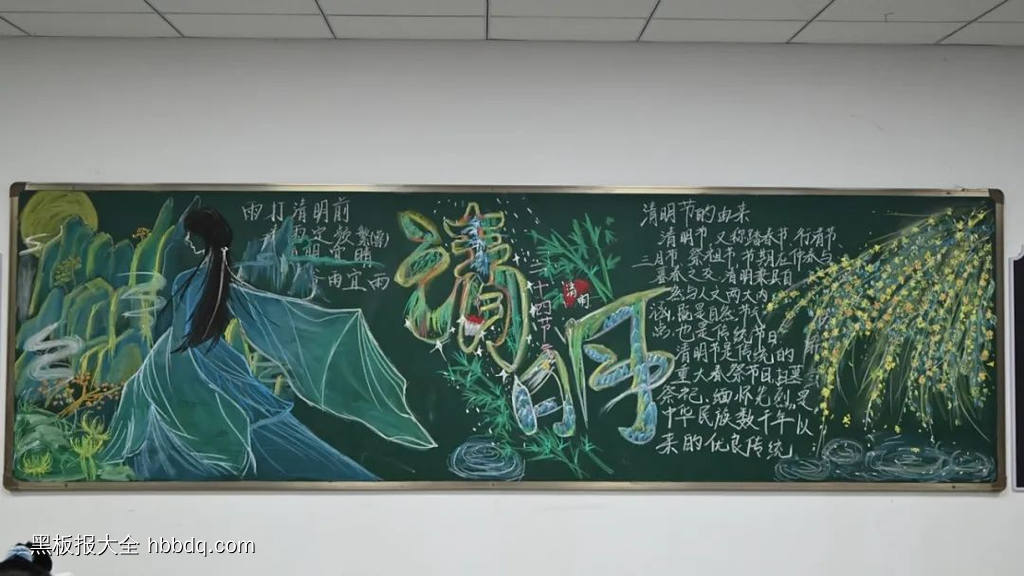 雨打清明前
清明宜晴
雨宜雨
清明
二十四节气
清明
清明节的由来
清明节,又称踏春节、行清节、
三月节、祭祖节,节期在仲春与
暮春之交。清明兼具自
然与人文两大内
涵,既是自然节气
点,也是传统节日
清明节是传统的
重大春祭节日,扫墓
祭祀、缅怀先烈,是
中华民族数千年以
来的优良传统
黑板报大全 hbbdq.com